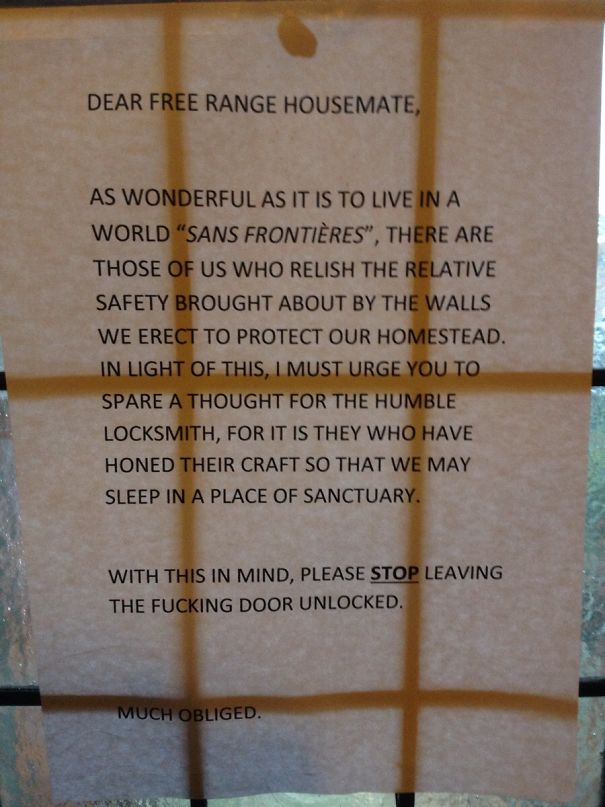 DEAR FREE RANGE HOUSEMATE,
AS WONDERFUL AS IT IS TO LIVE IN A
WORLD “SANS FRONTIÈRES”, THERE ARE
THOSE OF US WHO RELISH THE RELATIVE
SAFETY BROUGHT ABOUT BY THE WALLS
WE ERECT TO PROTECT OUR HOMESTEAD.
IN LIGHT OF THIS, I MUST URGE YOU TO
SPARE A THOUGHT FOR THE HUMBLE
LOCKSMITH, FOR IT IS THEY WHO HAVE
HONED THEIR CRAFT SO THAT WE MAY
SLEEP IN A PLACE OF SANCTUARY.
WITH THIS IN MIND, PLEASE STOP LEAVING
THE FUCKING DOOR UNLOCKED.
MUCH OBLIGED.